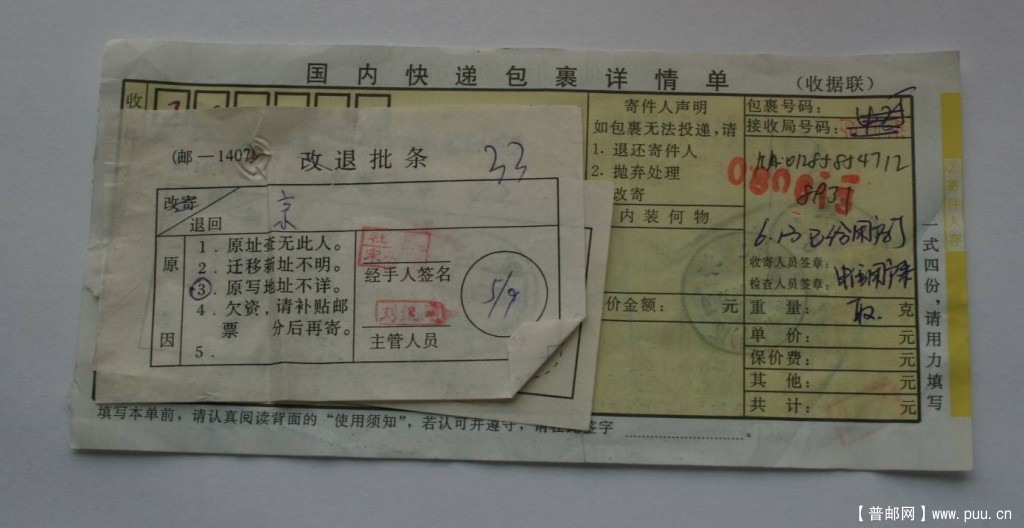 国内快递包裹详情单 (收据联)
收
(邮—1407)
改退批条
33
改寄
退回
京
原
因
1. 原址查无此人。
2. 迁移新址不明。
③. 原写地址不详。
4. 欠资，请补贴邮
票 分后再寄。
5.
经手人签名
主管人员
5/9
寄件人声明
如包裹无法投递，请
1. 退还寄件人
2. 抛弃处理
改寄
内装何物
价金额： 元
包裹号码：
接收局号码：
收寄人员签章：
检查人员签章：
取.
重量： 克
单价： 元
保价费： 元
其他： 元
共计： 元
一式四份，请用力填写
填写本单前，请认真阅读背面的“使用须知”，若认可并遵守，请在此签字
【普邮网】www.puu.cn